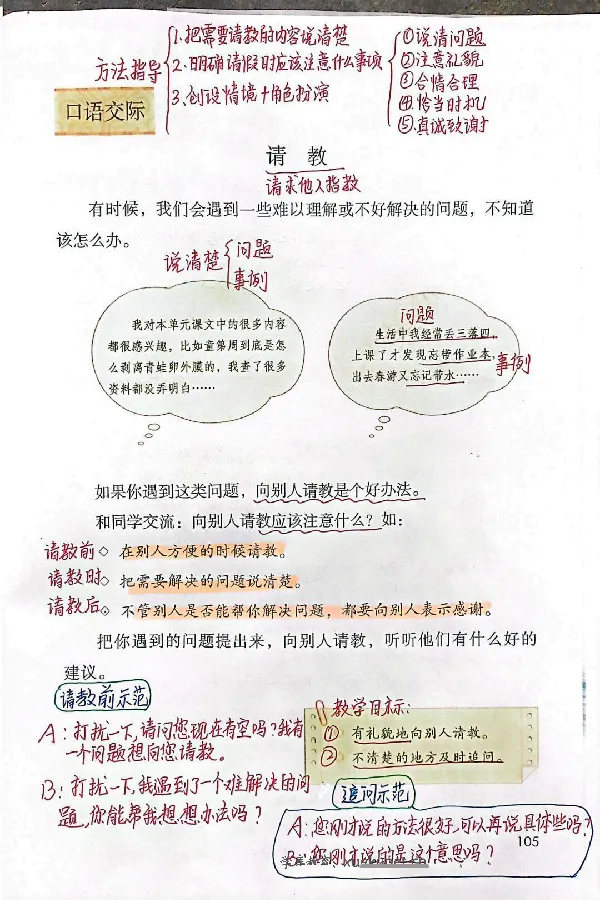 方法指导
1.把需要请教的内容说清楚
2.明确请假时应该注意什么事项
3.创设情境+角色扮演
①说清问题
②注意礼貌
③合情合理
④恰当时机
⑤真诚致谢
口语交际
请教
请求他人指教
有时候，我们会遇到一些难以理解或不好解决的问题，不知道
该怎么办。
说清楚
问题
事例
我对本单元课文中的很多内容
都很感兴趣，比如童第周到底是怎
么剥离青蛙卵外膜的，我查了很多
资料都没弄明白……
问题
生活中我经常丢三落四，
上课了才发现忘带作业本，
出去春游又忘记带水……
事例
如果你遇到这类问题，向别人请教是个好办法。
和同学交流：向别人请教应该注意什么？如：
请教前◇ 在别人方便的时候请教。
请教时◇ 把需要解决的问题说清楚。
请教后◇ 不管别人是否能帮你解决问题，都要向别人表示感谢。
把你遇到的问题提出来，向别人请教，听听他们有什么好的
建议。
请教前示范
A：打扰一下，请问您现在有空吗？我有
一个问题想向您请教。
B：打扰一下，我遇到了一个难解决的问
题，你能帮我想想办法吗？
教学目标：
① 有礼貌地向别人请教。
② 不清楚的地方及时追问。
追问示范
A：您刚才说的方法很好，可以再说具体些吗？
B：您刚才说的是这个意思吗？
105